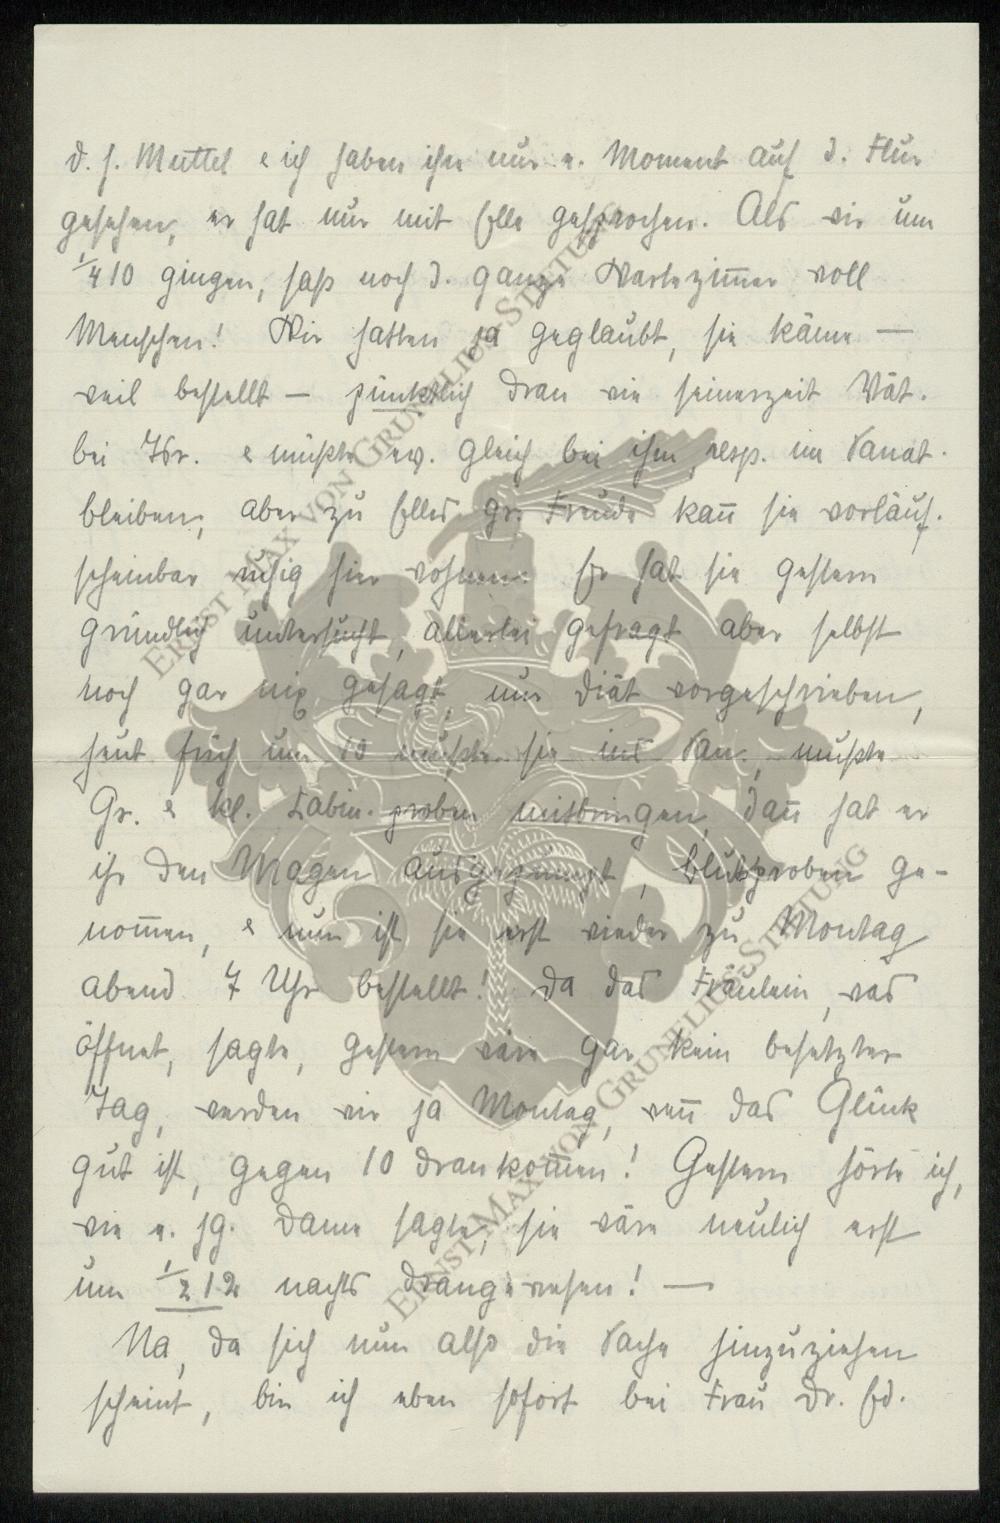 d. h. Muttel & ich haben ihn nur e. Moment auf d. Flur
gesehen, er hat nur mit Elle gesprochen. Als wir um
1/4 10 gingen, saß noch d. ganze Wartezim̅er voll
Menschen! Wir hatten ja geglaubt, sie käme —
weil bestellt — pünktlich dran wie seinerzeit Vät.
bei Isr. & müßte ev. gleich bei ihm resp. im Sanat.
bleiben, aber zu Elles gr. Freude kan̅ sie vorläuf.
scheinbar ruhig hier wohnen. Er hat sie gestern
gründlich untersucht, allerlei gefragt aber selbst
noch gar nix gesagt, nur Diät vorgeschrieben,
heut früh um 10 mußte sie ins San., mußte
Gr. & kl. proben mitbringen, dan̅ hat er
ihr den Magen ausgepumpt, Blutproben ge-
nom̅en, & nun ist sie erst wieder zu Montag
abend 7 Uhr bestellt! Da das Fräulein, was
öffnet, sagte, gestern wäre gar kein besetzter
Tag, werden wir ja Montag, wen̅ das Glück
gut ist, gegen 10 drankom̅en! Gestern hörte ich,
wie e. jg. Dame sagte, sie wäre neulich erst
um 1/2 12 nachts drangewesen! —
Na, da sich nun also die Sache hinzuziehen
scheint, bin ich eben sofort bei Frau Dr. Ed.
ERNST MAX VON GRUNELIUS-STIFTUNG
ERNST MAX VON GRUNELIUS-STIFTUNG